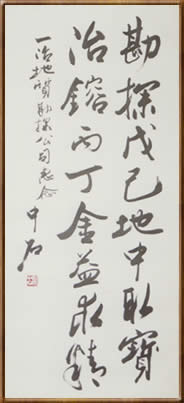 勘探戊己地中取寶
冶鎔丙丁金益求精
一冶地質勘探公司惠念
中石